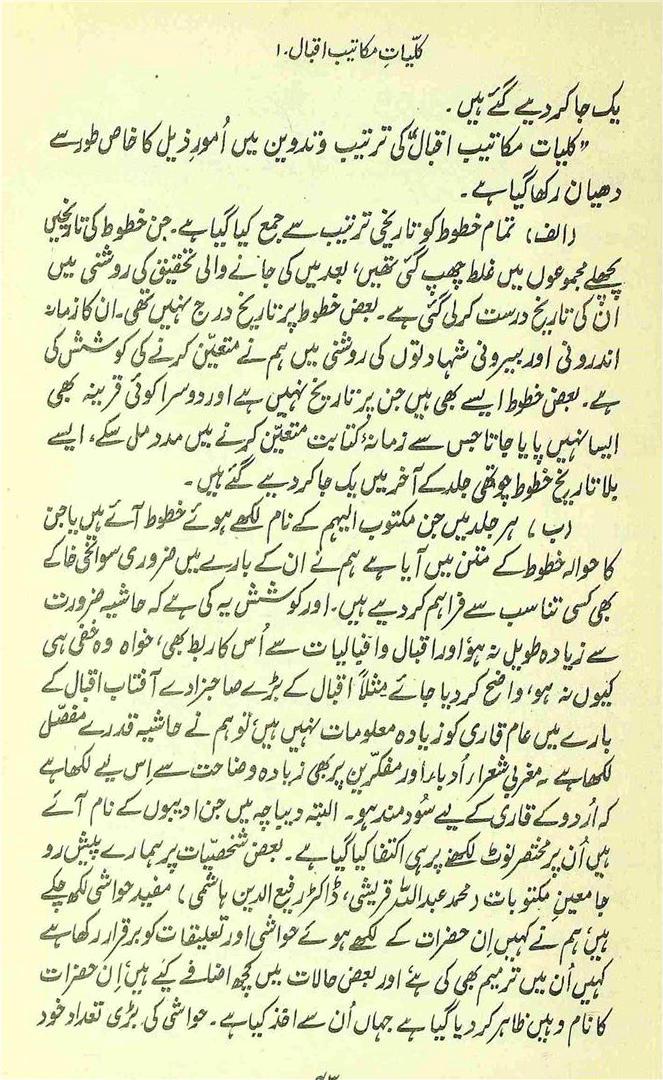 کلّیاتِ مکاتیب اقبال۔۱
یک جا کر دیے گئے ہیں۔
”کلیات مکاتیب اقبال“ کی ترتیب و تدوین میں اُمورِ ذیل کا خاص طور سے
دھیان رکھا گیا ہے۔
(الف) تمام خطوط کو تاریخی ترتیب سے جمع کیا گیا ہے۔ جن خطوط کی تاریخیں
پچھلے مجموعوں میں غلط چھپ گئی تھیں، بعد میں کی جانے والی تحقیق کی روشنی میں
ان کی تاریخ درست کر لی گئی ہے۔ بعض خطوط پر تاریخ درج نہیں تھی۔ ان کا زمانہ
اندرونی اور بیرونی شہادتوں کی روشنی میں ہم نے متعیّن کرنے کی کوشش کی
ہے۔ بعض خطوط ایسے بھی ہیں جن پر تاریخ نہیں ہے اور دوسرا کوئی قرینہ بھی
ایسا نہیں پایا جاتا جس سے زمانۂ کتابت متعیّن کرنے میں مدد مل سکے، ایسے
بلا تاریخ خطوط چوتھی جلد کے آخر میں یک جا کر دیے گئے ہیں۔
(ب) ہر جلد میں جن مکتوب الیہم کے نام لکھے ہوئے خطوط آئے ہیں یا جن
کا حوالہ خطوط کے متن میں آیا ہے ہم نے ان کے بارے میں ضروری سوانحی خاکے
بھی کسی تناسب سے فراہم کر دیے ہیں۔ اور کوشش یہ کی ہے کہ حاشیہ ضرورت
سے زیادہ طویل نہ ہو اور اقبال و اقبالیات سے اُس کا ربط بھی، خواہ وہ خفی ہی
کیوں نہ ہو، واضح کر دیا جائے مثلاً اقبال کے بڑے صاحبزادے آفتاب اقبال کے
بارے میں عام قاری کو زیادہ معلومات نہیں ہیں، تو ہم نے حاشیہ قدرے مفصّل
لکھا ہے۔ مغربی شعراء، اُدباء اور مفکرین پر بھی زیادہ وضاحت سے اِس لیے لکھا ہے
کہ اُردو کے قاری کے لیے سُود مند ہو۔ البتہ دیباچہ میں جن ادیبوں کے نام آئے
ہیں اُن پر مختصر نوٹ لکھنے پر ہی اکتفا کیا گیا ہے۔ بعض شخصیّات پر ہمارے پیش رو
جامعینِ مکتوبات (محمد عبداللہ قریشی، ڈاکٹر رفیع الدین ہاشمی) مفید حواشی لکھ چکے
ہیں، ہم نے کہیں اِن حضرات کے لکھے ہوئے حواشی اور تعلیقات کو برقرار رکھا ہے
کہیں اُن میں ترمیم بھی کی ہے، اور بعض حالات میں کچھ اضافے کیے ہیں، اِن حضرات
کا نام وہیں ظاہر کر دیا گیا ہے جہاں اُن سے اخذ کیا ہے۔ حواشی کی بڑی تعداد خود